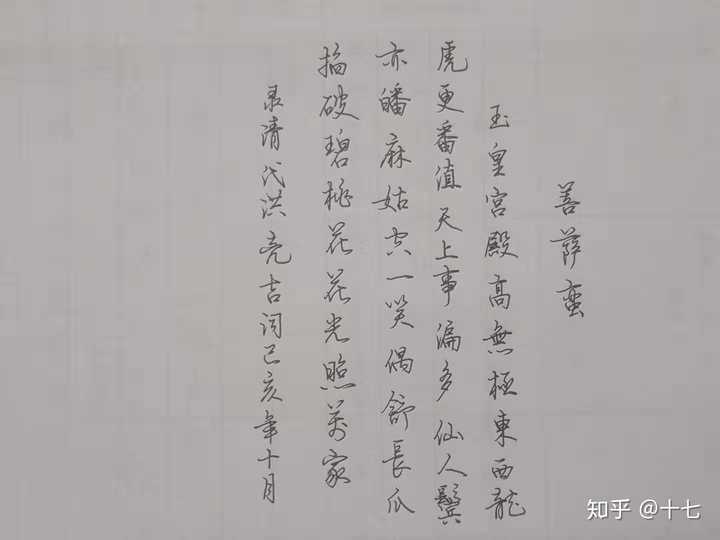 菩萨蛮
玉皇宫殿高無極東西龍
虎更番值天上事偏多仙人鬢
亦皤麻姑空一笑偶舒長爪
掐破碧桃花花光照萬家
录清代洪亮吉词己亥年十月
知乎 @十七